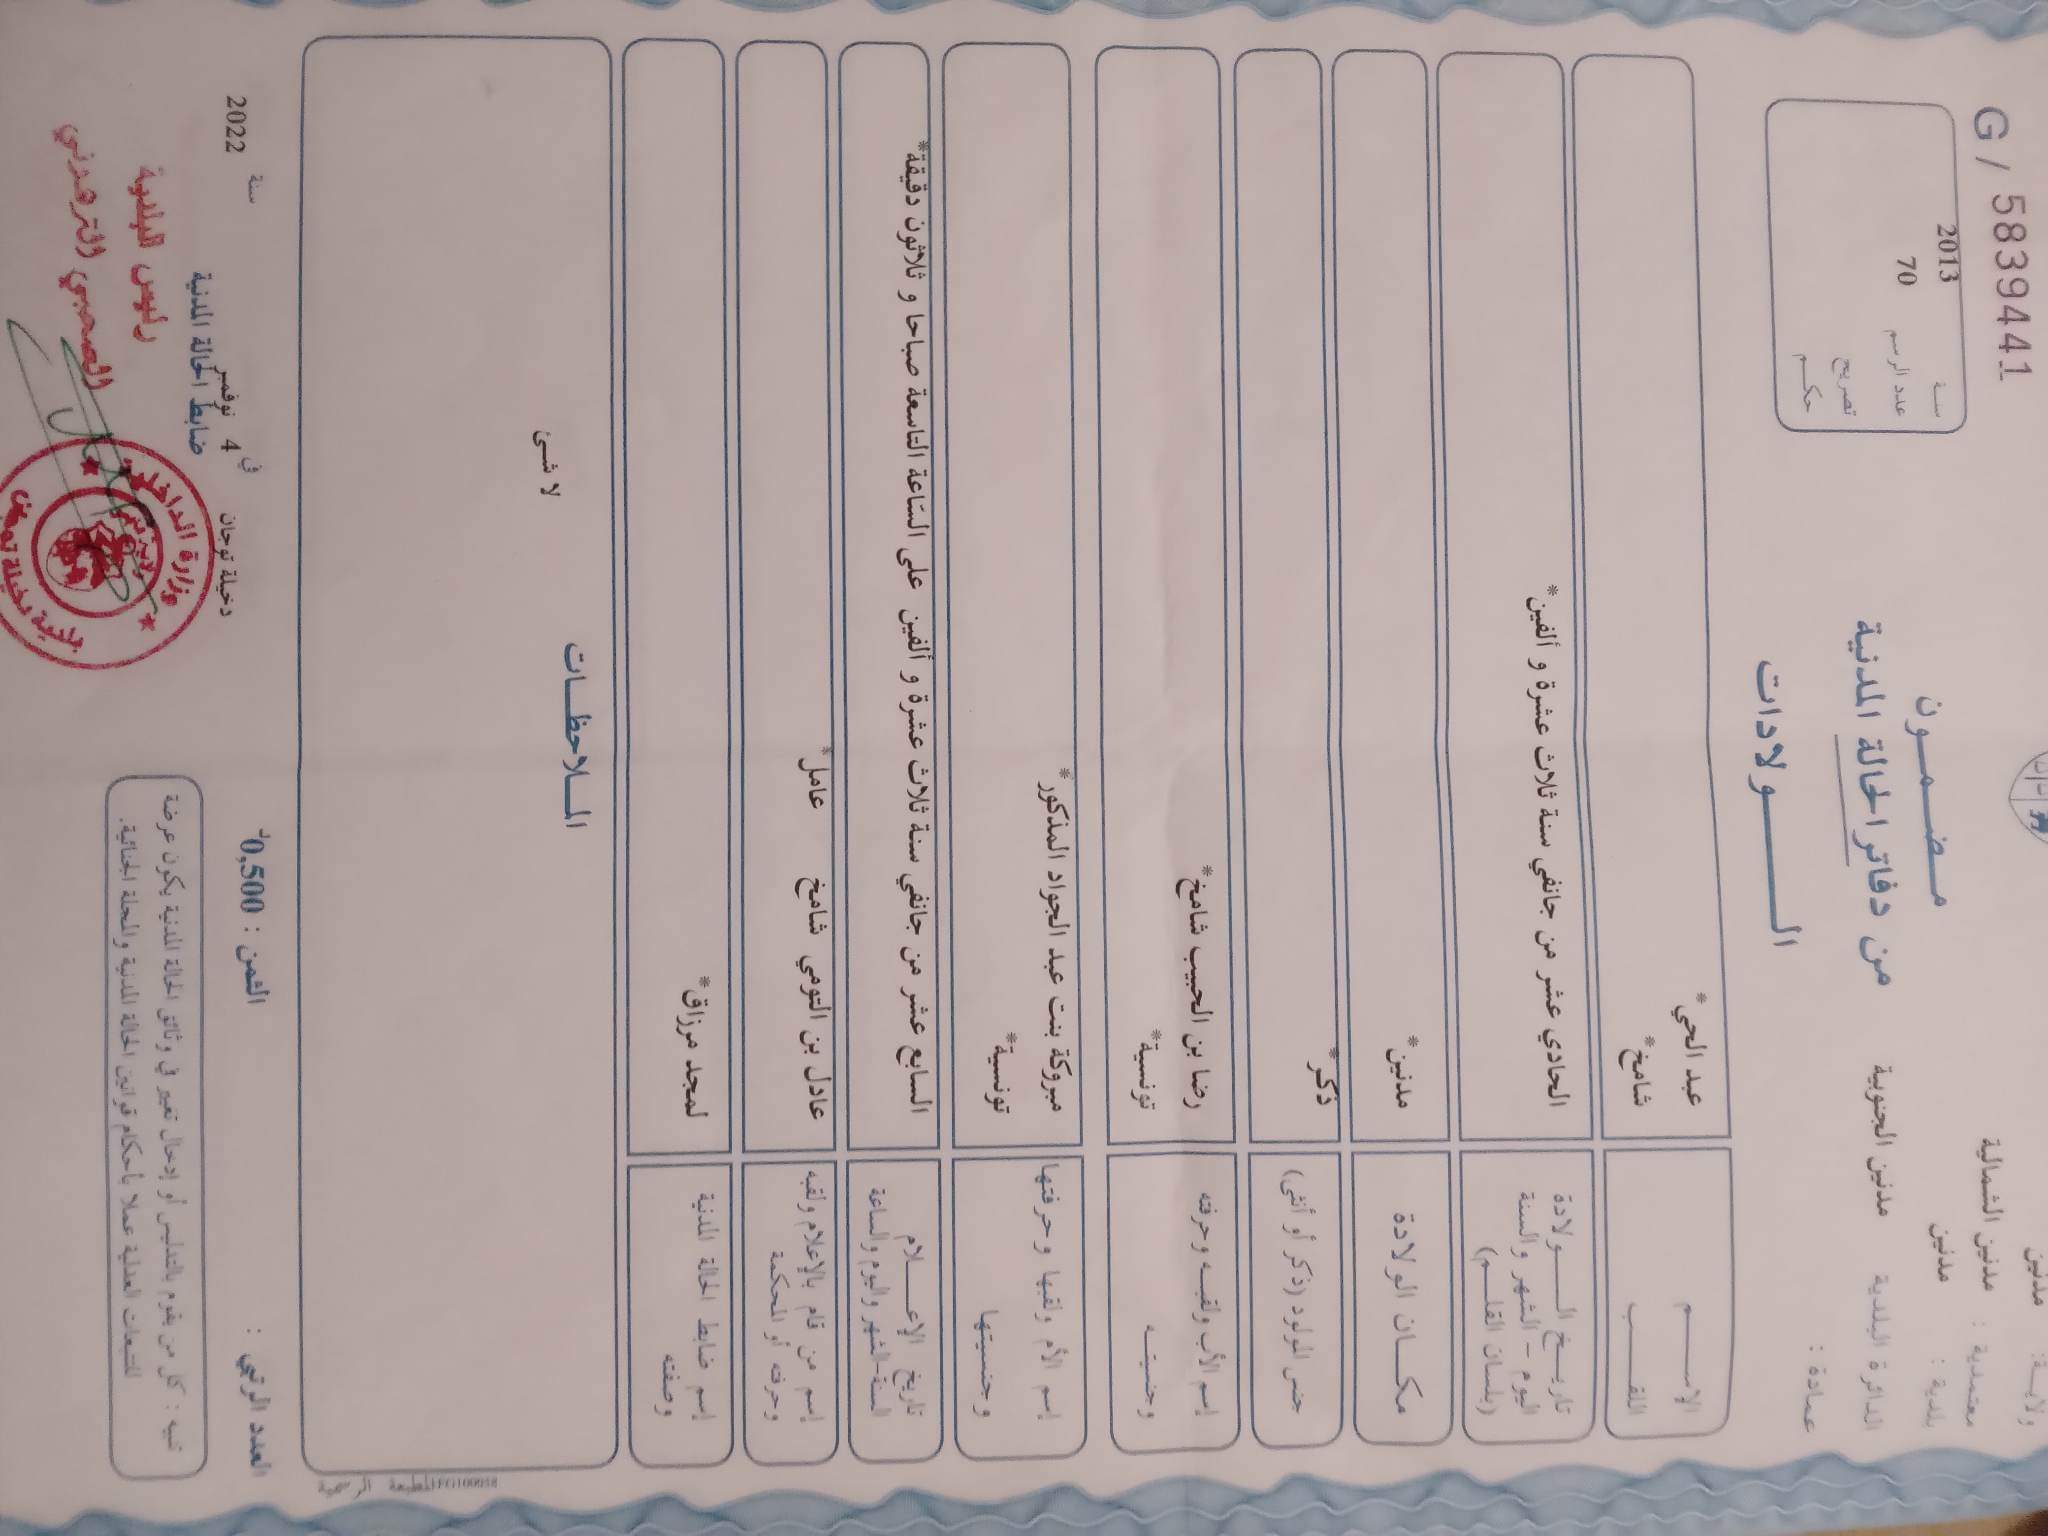 G / 5839441
ولايـــة: مدنين
معتمدية : مدنين الشمالية
بلدية : مدنين
الدائرة البلدية مدنين الجنوبية
عمادة :
مـضـمــون
من دفاتر الحالة المدنية
الـــــــولادات
سنـة 2013
عدد الرسم 70
تصريح
حكــم
الإســــم عبد الحي*
اللقـــب شامخ*
تاريـــخ الـــــولادة
اليوم - الشهر والسنة
(بلسان القلــم)
الحادي عشر من جانفي سنة ثلاث عشرة و ألفين*
مكـــان الولادة مدنين*
جنس المولود (ذكر أو أنثى) ذكر*
إسم الأب ولقبــه وحرفته رضا بن الحبيب شامخ*
وجنسيتــه تونسية*
إسم الأم ولقبها وحرفتها مبروكة بنت عبد الجواد المذكور*
وجنسيتها تونسية*
تاريخ الإعــــلام
السنة-الشهر واليوم والساعة
السابع عشر من جانفي سنة ثلاث عشرة و ألفين على السّاعة التاسعة صباحا و ثلاثون دقيقة*
إسم من قام بالإعلام ولقبه
وحرفته أو المحكمة
عادل بن التومي شامخ عامل*
إسم ضابط الحالة المدنية
وصفته
لمجد مرزاق*
المــلاحظــات
لا شئ
المطبعة الرسمية
العدد الرتبي : الثمن : 0,500د
دخيلة توجان في 4 نوفمبر سنة 2022
ضابط الحالة المدنية
رئيس البلدية
الصحبي الترهوني
وزارة الداخلية
تنبيه : كل من يقوم بالتدليس أو إدخال تغيير في وثائق الحالة المدنية يكون عرضة
للتتبعات العدلية عملا بأحكام قوانين الحالة المدنية والمجلة الجنائية.